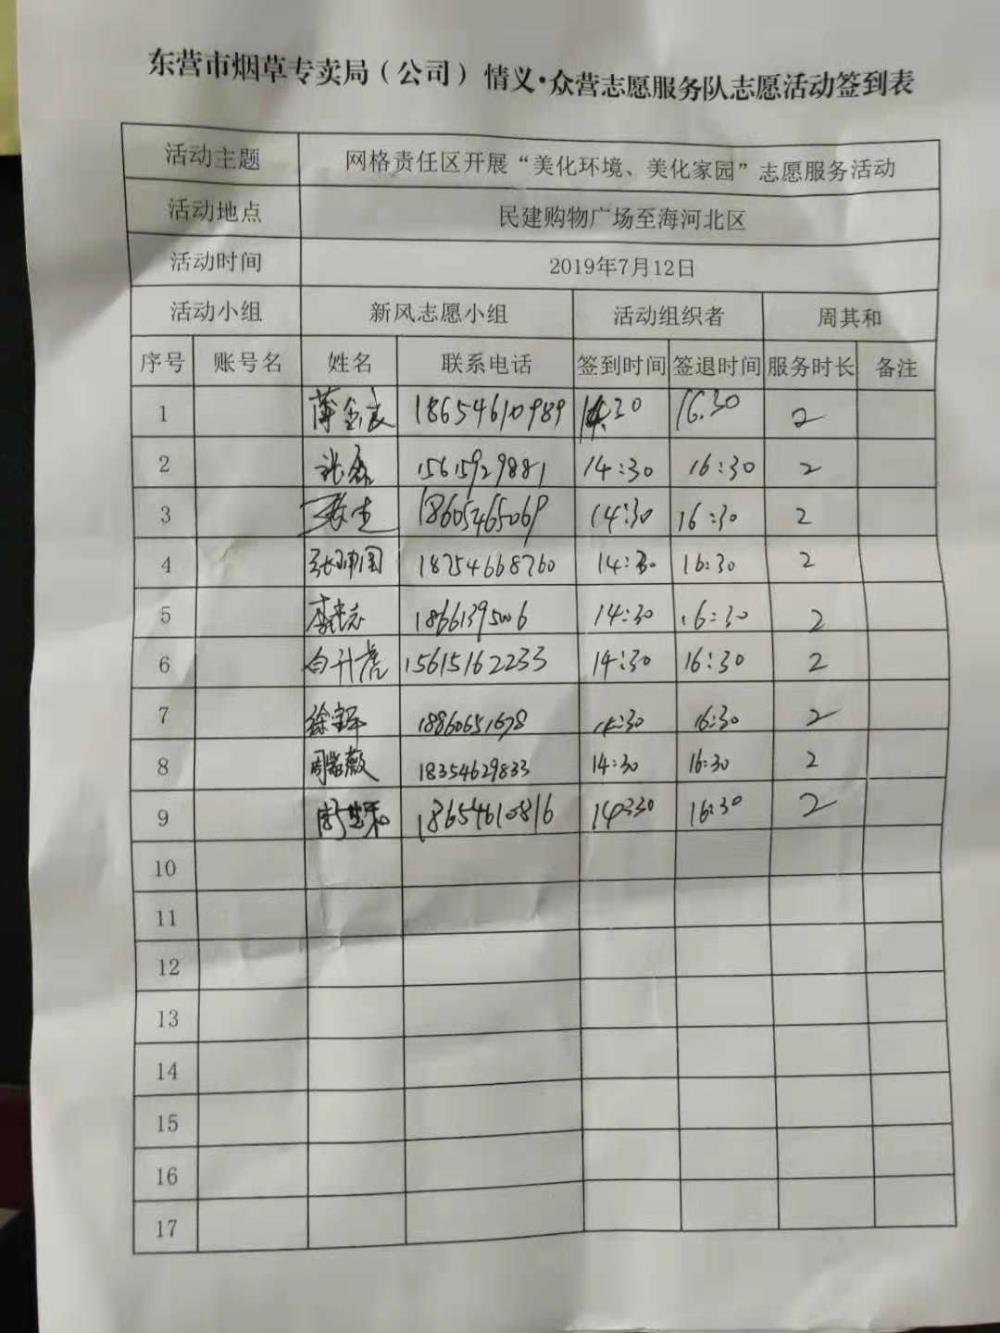 东营市烟草专卖局（公司）情义·众营志愿服务队志愿活动签到表
活动主题 网格责任区开展“美化环境、美化家园”志愿服务活动
活动地点 民建购物广场至海河北区
活动时间 2019年7月12日
活动小组 新风志愿小组 活动组织者 周其和
序号 账号名 姓名 联系电话 签到时间 签退时间 服务时长 备注
1 18654610989 14:30 16.30 2
2 张磊 15615929881 14:30 16:30 2
3 18605465069 14:30 16:30 2
4 18754668760 14:30 16:30 2
5 14:30 16:30 2
6 白升虎 15615162233 14:30 16:30 2
7 14:30 16:30 2
8 周紫薇 18354629833 14:30 16:30 2
9 周其和 18654610816 14:30 16:30 2
10
11
12
13
14
15
16
17